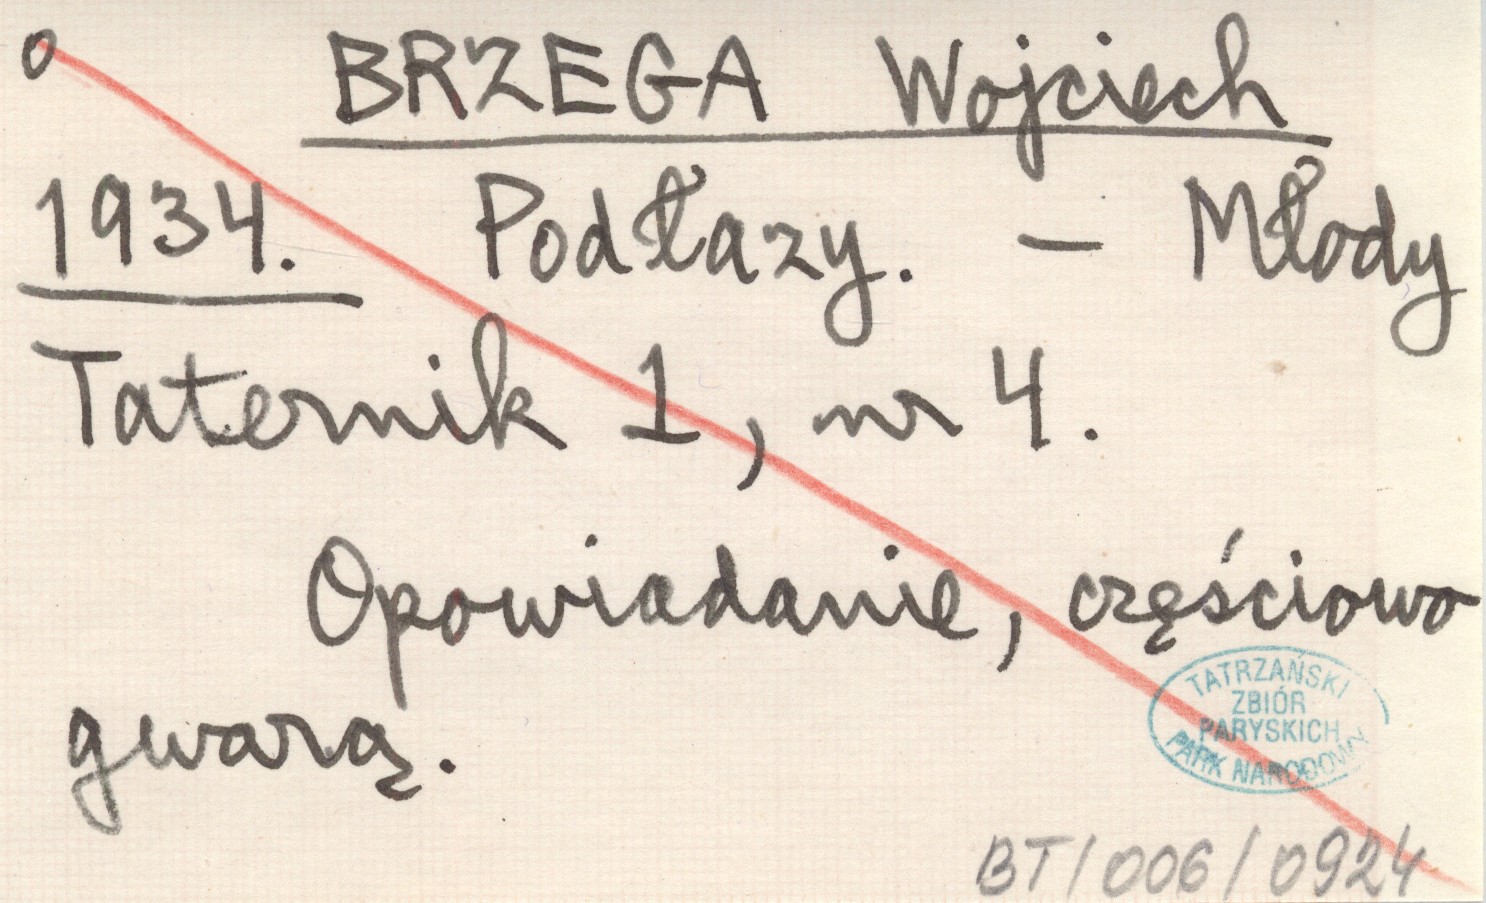 o BRZEGA Wojciech
1934. Podłazy. – Młody
Taternik 1, nr 4.
Opowiadanie, częściowo
gwarą.
TATRZAŃSKI
ZBIÓR
PARYSKICH
PARK NARODOWY
BT/006/0924